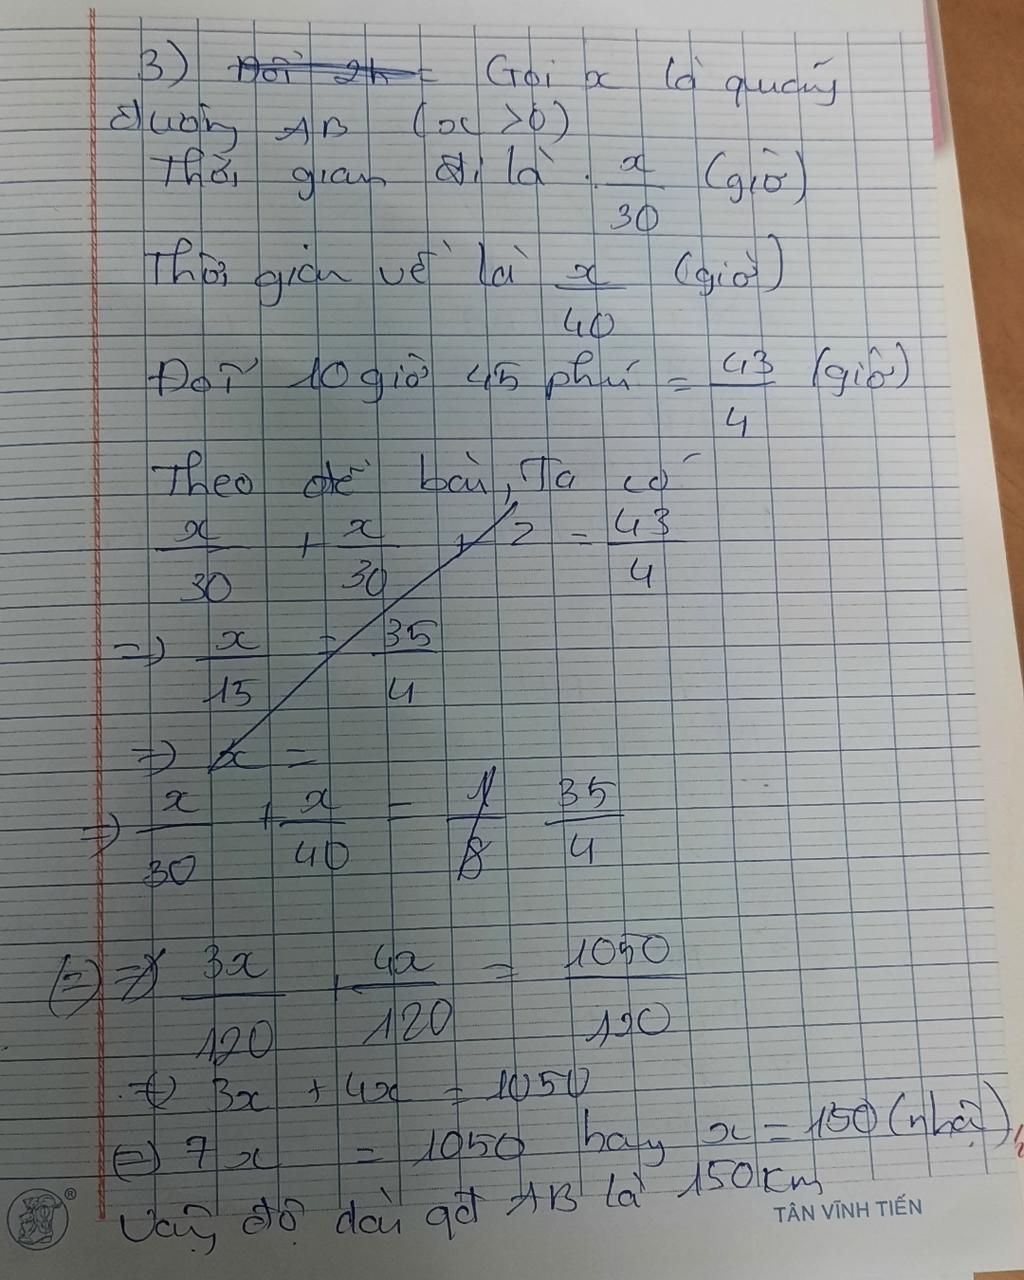 3) Đổi 2h = Gọi x là quãng
đường AB (x > 0)
Thời gian đi là x/30 (giờ)
Thời gian về là x/40 (giờ)
Đổi 10 giờ 45 phú = 43/4 (giờ)
Theo đề bài, Ta có
x/30 + x/30 + 2 = 43/4
=> x/15 = 35/4
=> x =
=> x/30 + x/40 = 1/8 35/4
(=) => 3x/120 + 4x/120 = 1050/120
(=) 3x + 4x = 1050
(=) 7x = 1050 hay x = 150 (nhậ)
Vậy độ dài qđ AB là 150km
®
TÂN VĨNH TIẾN